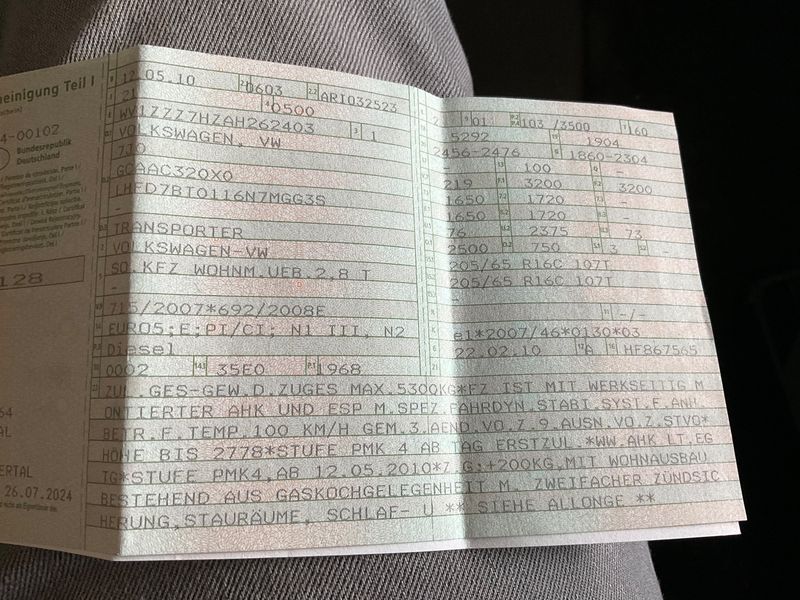 heinigung Teil I
4-00102
Bundesrepublik
Deutschland
128
64
AL
ERTAL
26.07.2024
B 12.05.10 2.1 0603 2.2 ARI032523
J 21 4 0500
E WV1ZZZ7HZAH262403 3 1
D.1 VOLKSWAGEN, VW
7J0
D.2 GCAAC320X0
LHFD7BT0116N7MGG3S
-
D.3 TRANSPORTER
2 VOLKSWAGEN-VW
5 SO.KFZ WOHNM.UEB.2,8 T
-
V.9 715/2007*692/2008F
14 EURO5;F;PI/CI; N1 III, N2
P.3 Diesel
10 0002 14.1 35F0 P.1 1968
01 P.2 P.4 103 /3500 T 160
5292 1904
2456-2476 1860-2304
100 -
219 3200 3200
1650 1720 -
1650 1720 -
76 2375 73
2500 750 S.1 3 S.2 -
205/65 R16C 107T
205/65 R16C 107T
-
-/-
K e1*2007/46*0130*03
6 22.02.10 17 A 16 HF867565
21
22 ZUL.GES-GEW.D.ZUGES MAX.5300KG*FZ IST MIT WERKSEITIG M
ONTIERTER AHK UND ESP M.SPEZ.FAHRDYN.STABI.SYST.F.ANH.
BETR.F.TEMP.100 KM/H GEM.3.AEND.VO.Z.9.AUSN.VO.Z.STVO*
HÖHE BIS 2778*STUFE PMK 4 AB TAG ERSTZUL.*WW.AHK LT.EG
TG*STUFE PMK4,AB 12.05.2010*Z.G:+200KG.MIT WOHNAUSBAU
BESTEHEND AUS GASKOCHGELEGENHEIT M. ZWEIFACHER ZÜNDSIC
HERUNG,STAURÄUME, SCHLAF- U ** SIEHE ALLONGE **